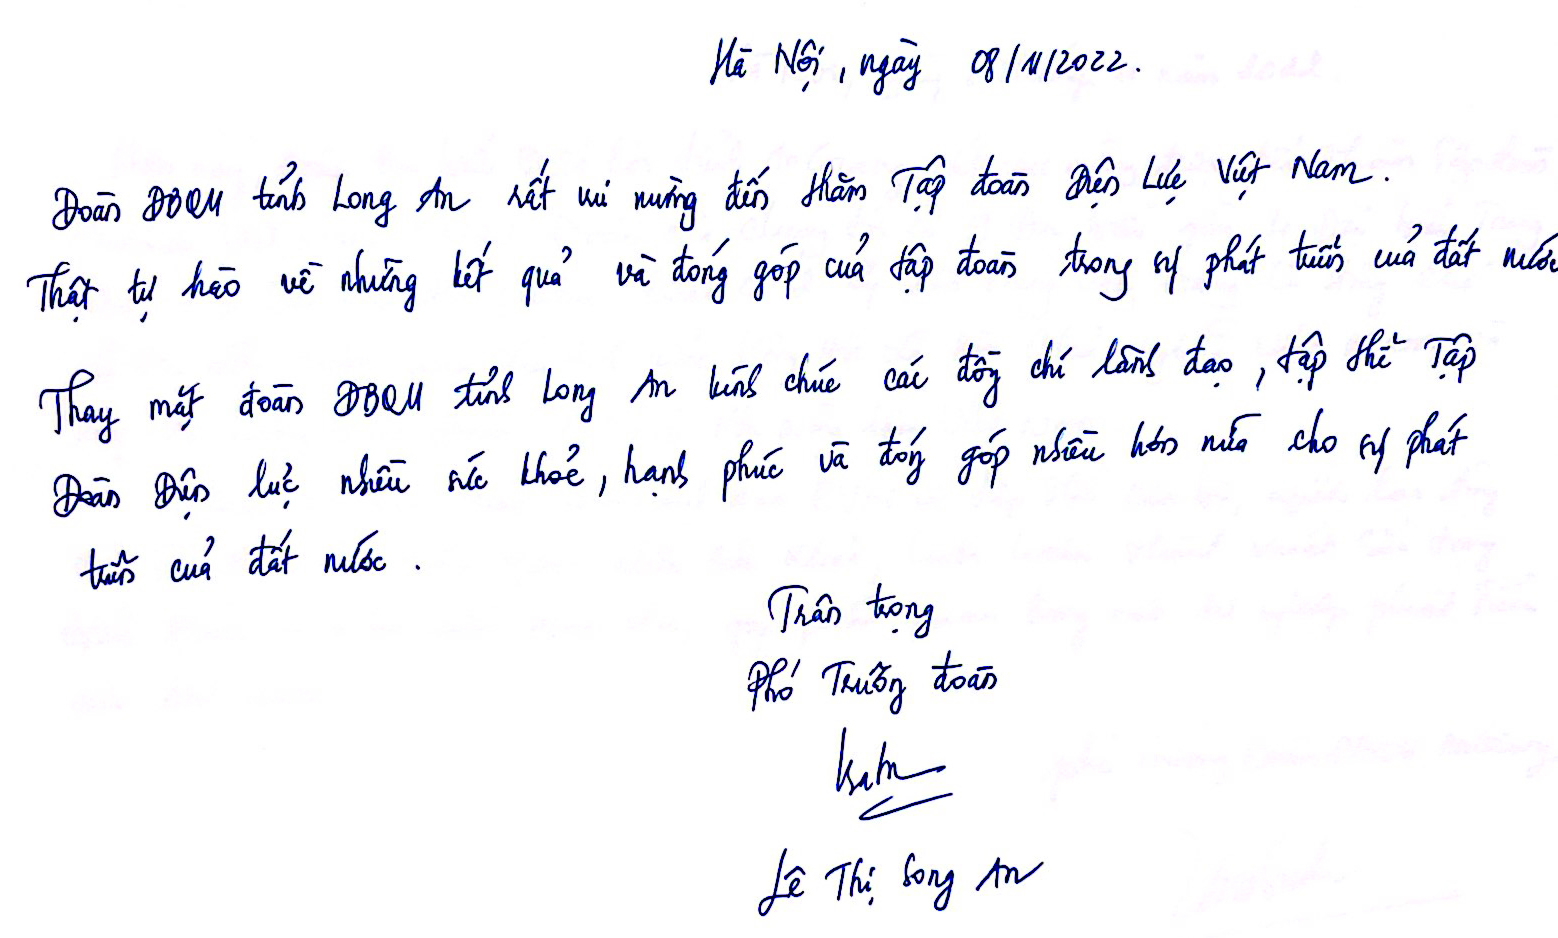 Hà Nội, ngày 08/11/2022.
Đoàn ĐBQH tỉnh Long An rất vui mừng đến thăm Tập đoàn Điện Lực Việt Nam.
Thật tự hào về những kết quả và đóng góp của tập đoàn trong sự phát triển của đất nước
Thay mặt đoàn ĐBQH tỉnh Long An kính chúc các đồng chí lãnh đạo, tập thể Tập
Đoàn Điện lực nhiều sức khoẻ, hạnh phúc và đóng góp nhiều hơn nữa cho sự phát
triển của đất nước.
Trân trọng
Phó Trưởng đoàn
Lê Thị Song An